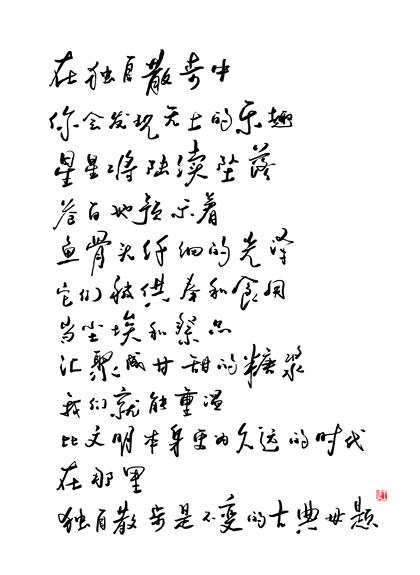 在独自散步中
你会发现无上的乐趣
星星将陆续坠落
苍白地预示着
鱼骨头纤细的光泽
它们被供奉和食用
当尘埃和祭品
汇聚成甘甜的糖浆
我们就能重温
比文明本身更为久远的时代
在那里
独自散步是不变的古典母题